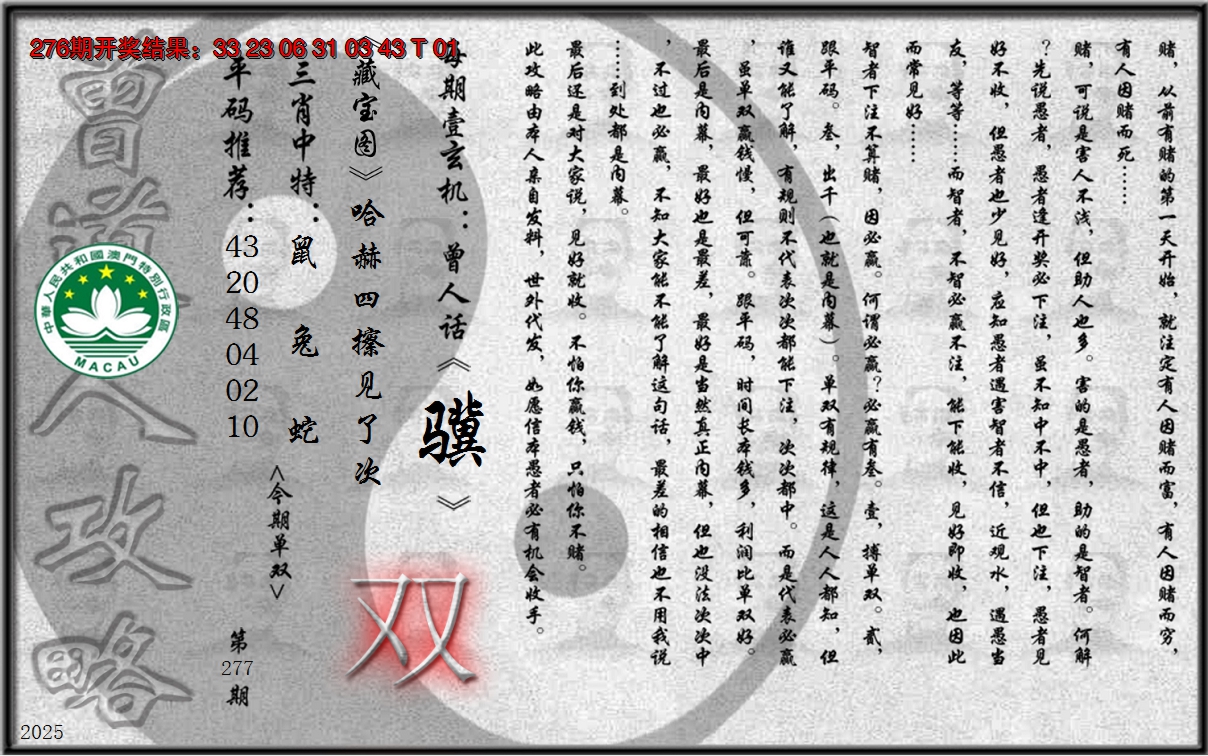 276期开奖结果：33 23 06 31 03 43 T 01
赌，从前有赌的第一天开始，就注定有人因赌而富，有人因赌而穷，
有人因赌而死……
赌，可说是害人不浅，但助人也多。害的是愚者，助的是智者。何解
？先说愚者，愚者逢开奖必下注，虽不知中不中，但也下注，愚者见
好不收，但愚者也少见好，应知愚者遇害智者不信，近观水，遇愚当
友，等等……而智者，不智必赢不注，能下能收，见好即收，也因此
而常见好……
智者下注不算赌，因必赢。何谓必赢？必赢有叁。壹，搏单双。贰，
跟平码。叁，出千（也就是内幕）。单双有规律，这是人人都知，但
谁又能了解，有规则不代表次次都能下注，次次都中。而是代表必赢
，虽单双赢钱慢，但可靠。跟平码，时间长本钱多，利润比单双好。
最后是内幕，最好也是最差，最好是当然真正内幕，但也没法次次中
，不过也必赢，不知大家能不能了解这句话，最差的相信也不用我说
……到处都是内幕。
最后还是对大家说，见好就收。不怕你赢钱，只怕你不赌。
此攻略由本人亲自发料，世外代发，如愿信本愚者必有机会收手。
每期壹玄机：曾人话《骥》
《藏宝图》哈赫四擦见了次
双
三肖中特：鼠 兔 蛇
<今期单双>
平码推荐：43 20 48 04 02 10
第277期
曾道人攻略
中華人民共和國澳門特別行政區
MACAU
2025